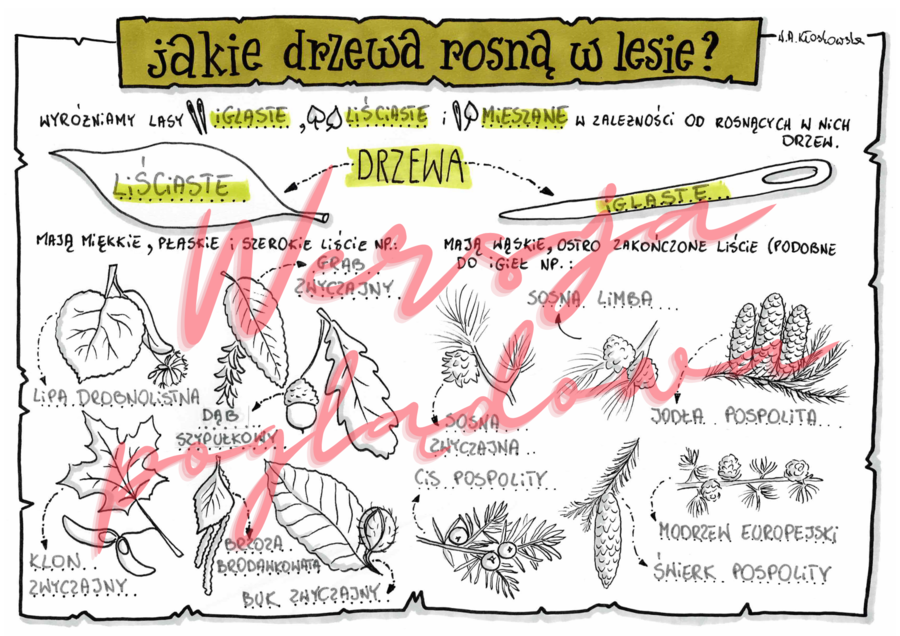 jakie drzewa rosną w lesie?
N.A.Kłosłowska
WYRÓŻNIAMY LASY iGLASTE, LiŚCIASTE i MiESZANE W ZALEŻNOŚCI OD ROSNĄCYCH W NiCH
DRZEW.
DRZEWA
LiŚCIASTE
iGLASTE
MAJĄ MiĘKKIE, PŁASKIE i SZEROKIE LiŚCIE NP.:
MAJĄ WĄSKIE, OSTRO ZAKOŃCZONE LIŚCIE (PODOBNE
DO iGIEŁ NP.:
GRAB
ZWYCZAJNY
LiPA DROBNOLISTNA
DĄB
SZYPUŁKOWY
KLON
ZWYCZAJNY
BRZOZA
BRODAWKOWATA
BUK ZWYCZAJNY
SOSNA LIMBA
SOSNA
ZWYCZAJNA
JODŁA POSPOLITA
CiS POSPOLITY
MODRZEW EUROPEJSKI
ŚWIERK POSPOLITY
Wersja
poglądowa